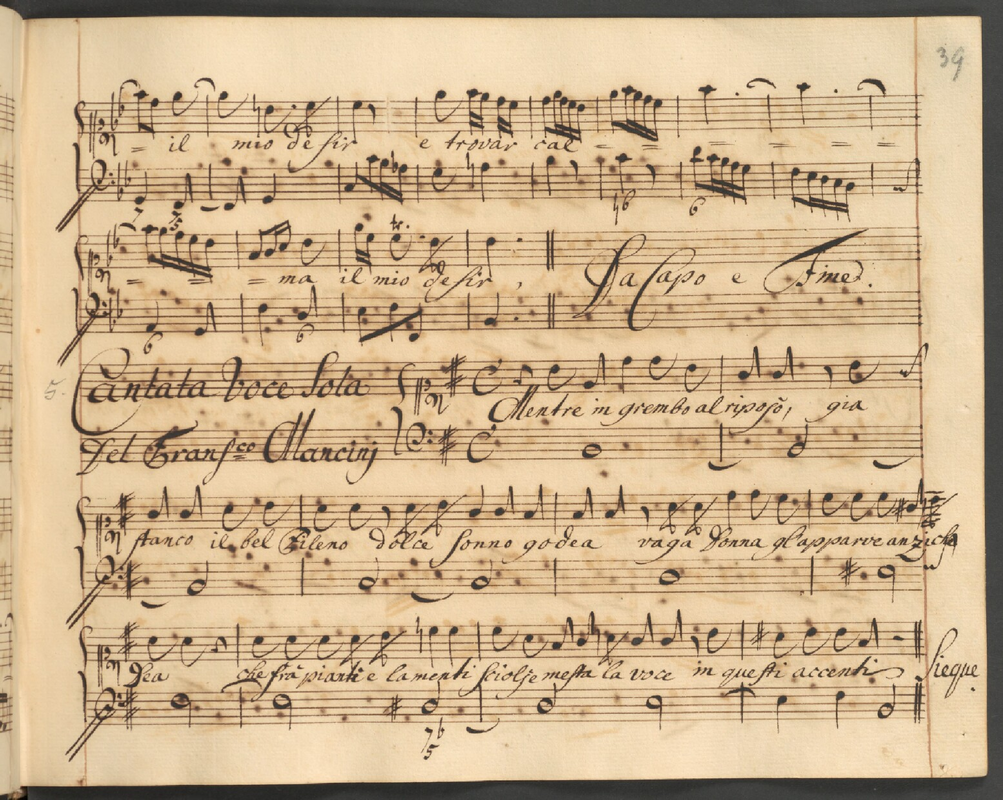 39
= il mio desir e trovar cal = = = = = = = =
7 7 5 4 6 6
= = = ma il mio desir, Da Capo e Fine.
6 6
5. Cantata Voce Sola
Mentre in grembo al riposo, gia
Del Fransco Mancinj
stanco il bel Fileno dolce sonno godea vaga Donna gl'apparve anzi che
Dea che frà pianti e lamenti sciolse mesta la voce in questi accenti Siegue.
7 6 5